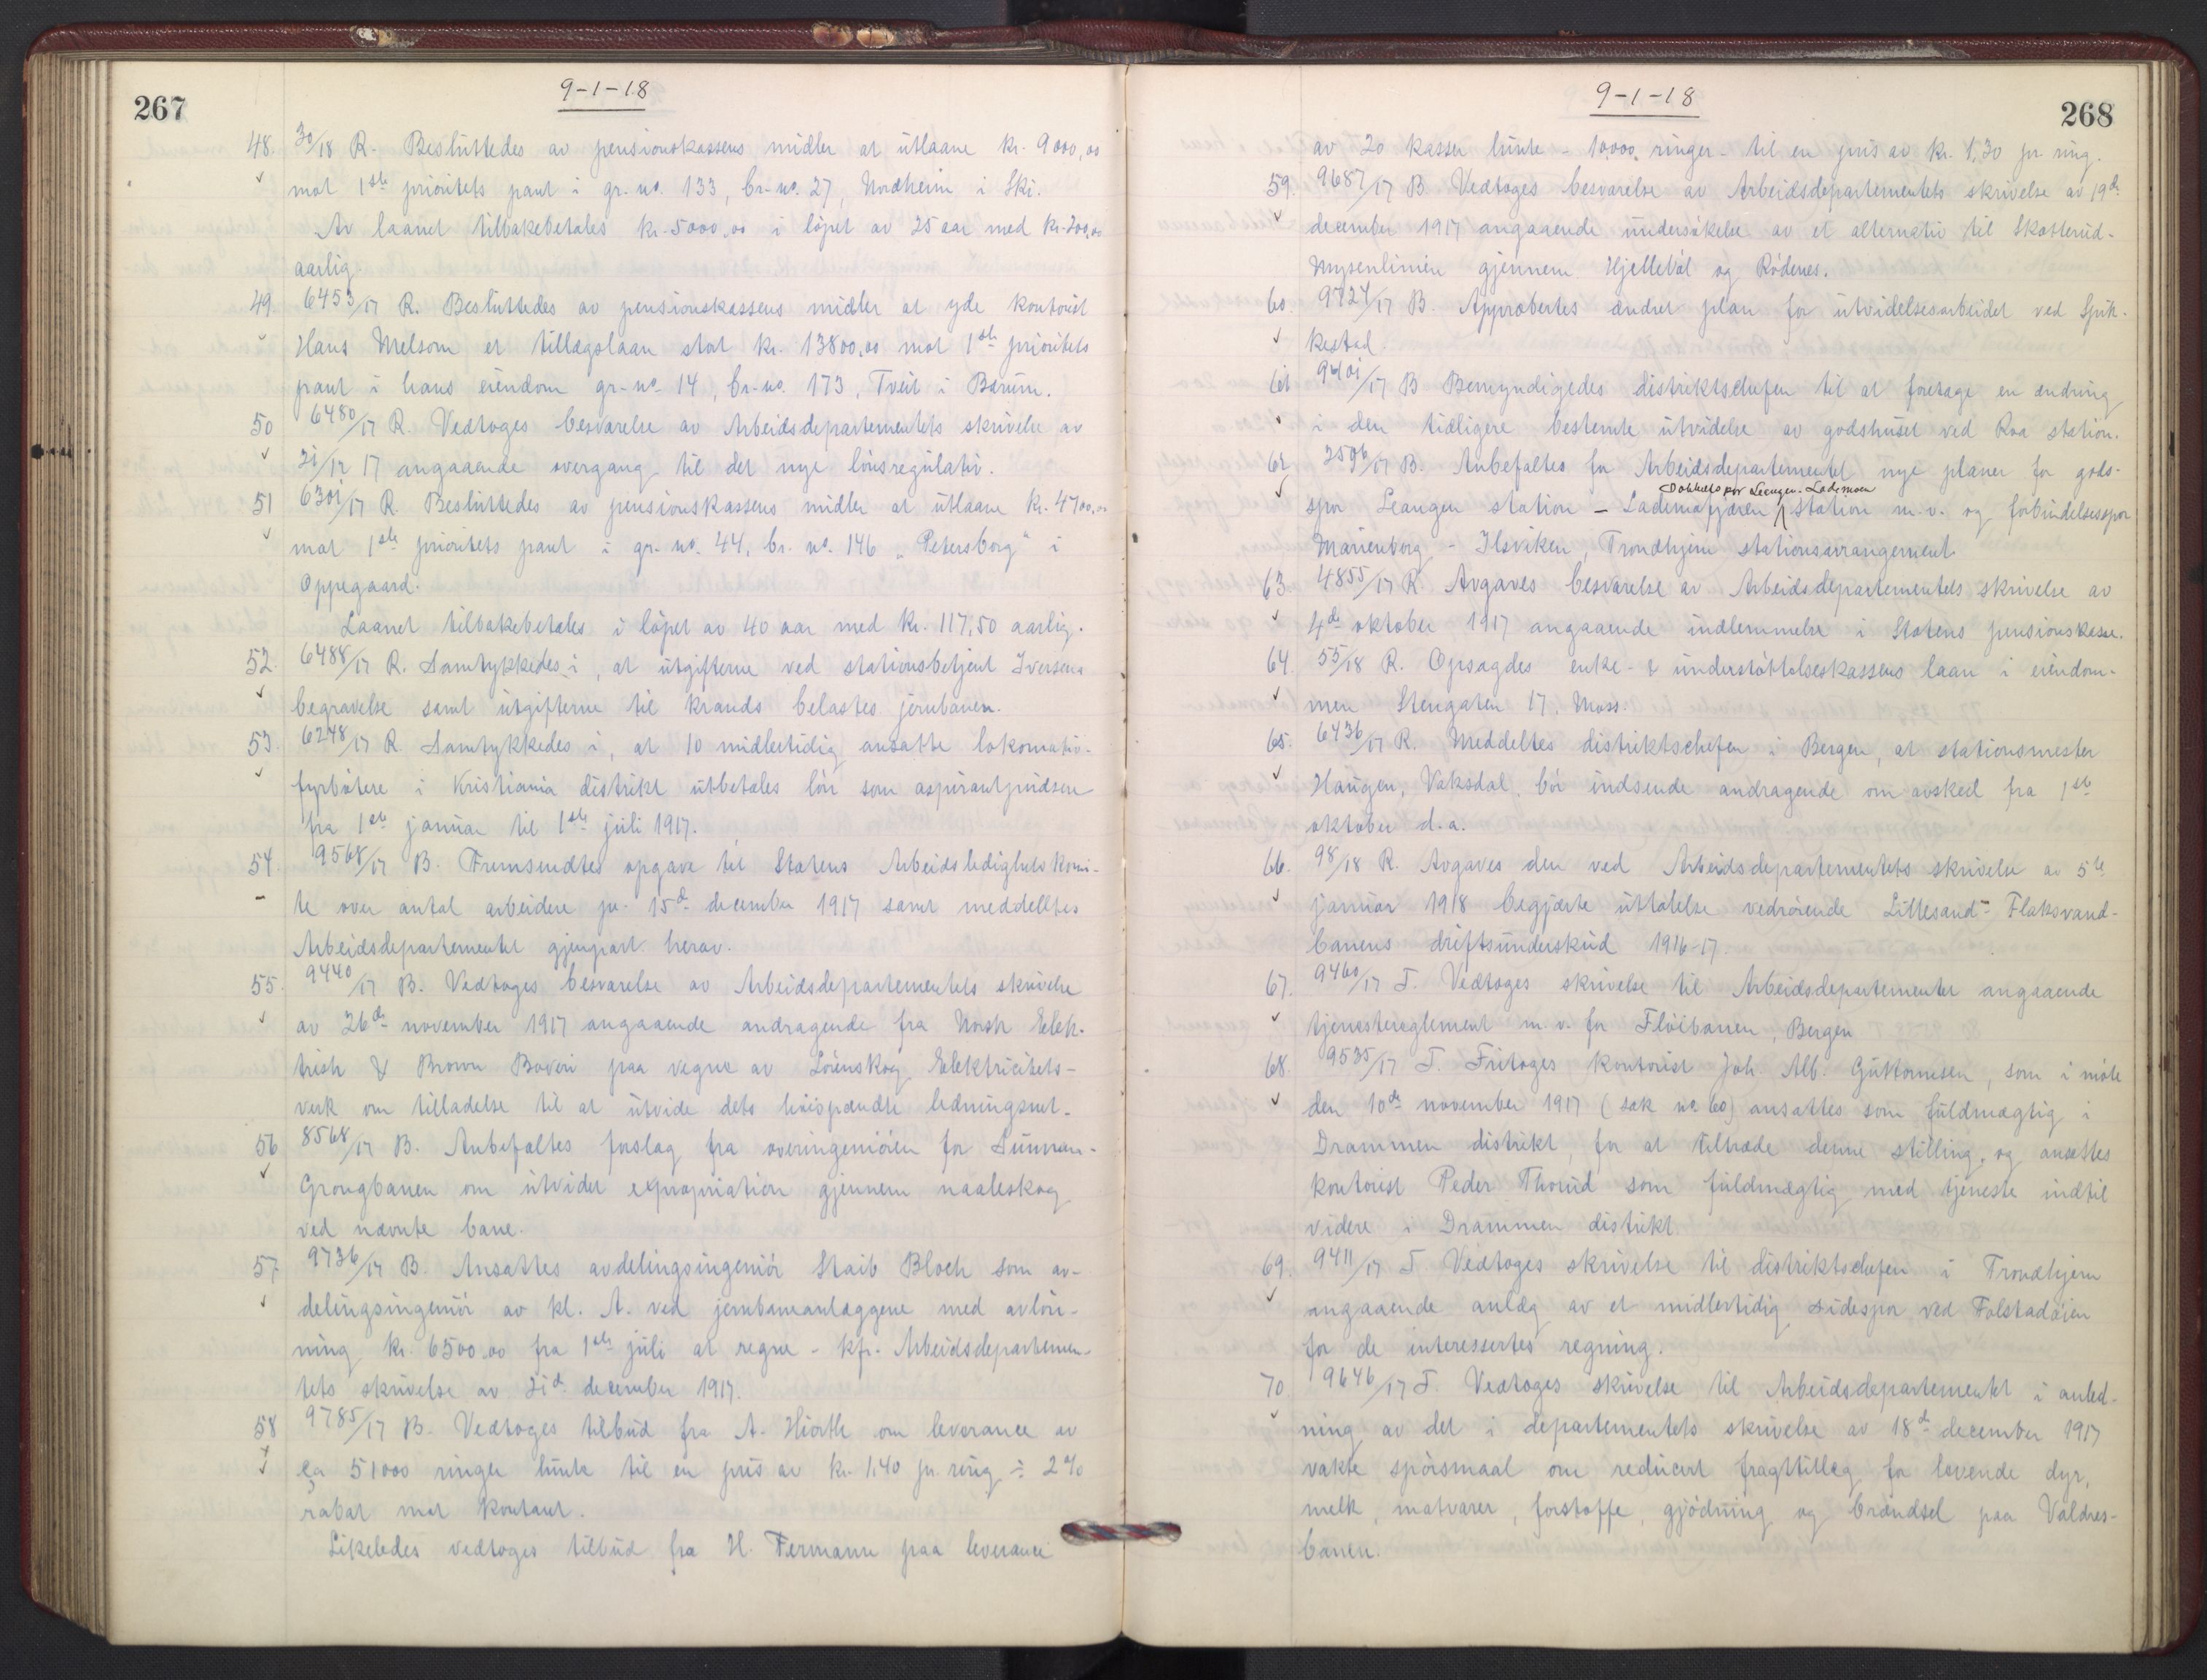 267
9-1-18
48. 30/18 R. Besluttedes av pensionskassens midler at utlaane kr. 9000,00
mot 1ste prioritets pant i gr. no. 133, br. no. 27, Nordheim i Ski.
Av laanet tilbakebetales kr. 5000,00 i løpet av 25 aar med kr. 200,00
aarlig.
49. 6453/17 R. Besluttedes av pensionskassens midler at yde kontorist
Hans Melsom et tillægslaan stort kr. 13800,00 mot 1ste prioritets
pant i hans eiendom gr. no. 14, br. no. 173, Tveit i Bærum.
50 6480/17 R. Vedtoges besvarelse av Arbeidsdepartementets skrivelse av
21/12 17 angaaende overgang til det nye lønsregulativ.
51 6301/17 R. Besluttedes av pensionskassens midler at utlaane kr. 4700,00
mot 1ste prioritets pant i gr. no. 44, br. no. 146 „Petersborg" i
Oppegaard.
Laanet tilbakebetales i løpet av 40 aar med kr. 117,50 aarlig.
52 6488/17 R. Samtykkedes i, at utgifterne ved stationsbetjent Iversens
begravelse samt utgifterne til krands belastes jernbanen.
53. 6248/17 R. Samtykkedes i, at 10 midlertidig ansatte lokomotiv-
fyrbøtere i Kristiania distrikt utbetales løn som aspirantpudsere
fra 1ste januar til 1ste juli 1917.
54. 9568/17 B. Fremsendtes opgave til Statens Arbeidsledighetskomi-
te over antal arbeidere pr. 15de december 1917 samt meddeltes
Arbeidsdepartementet gjenpart herav.
55. 9440/17 B. Vedtoges besvarelse av Arbeidsdepartementets skrivelse
av 26de november 1917 angaaende andragende fra Norsk Elek-
trisk & Brown Boveri paa vegne av Lørenskog Elektricitets-
verk om tilladelse til at utvide dets høispændte ledningsnet.
56 8568/17 B. Anbefaltes forslag fra overingeniøren for Sunnan-
Grongbanen om utvidet expropriation gjennem naaleskog
ved nævnte bane.
57 9736/17 B. Ansattes avdelingsingeniør Staib Bloch som av-
delingsingeniør av kl. A. ved jernbaneanlæggene med avløn-
ning kr. 6500,00 fra 1ste juli at regne - kfr. Arbeidsdepartemen-
tets skrivelse av 21de december 1917.
58 9785/17 B. Vedtoges tilbud fra A. Hiorth om leverance av
ca 51000 ringer lunte til en pris av kr. 1,40 pr. ring ÷ 2%
rabat mot kontant.
Likeledes vedtoges tilbud fra H. Fermann paa leverance
268
9-1-18
av 20 kasser lunte - 10.000 ringer - til en pris av kr. 1,30 pr. ring.
59. 9687/17 B Vedtoges besvarelse av Arbeidsdepartementets skrivelse av 19de
december 1917 angaaende undersøkelse av et alternativ til Skotterud-
Mysenlinien gjennem Hjellebøl og Rødenes.
60. 9724/17 B. Approbertes ændret plan for utvidelsesarbeidet ved Spik-
kestad.
61 9401/17 B Bemyndigedes distriktschefen til at foretage en ændring
i den tidligere bestemte utvidelse av godshuset ved Roa station.
62 2596/17 B. Anbefaltes for Arbeidsdepartementet nye planer for gods-
Dobbeltspor Leangen-Lademoen
spor Leangen station - Lademofjæren station m.v. og forbindelsesspor
Marienborg - Ilsviken, Trondhjem stationsarrangement.
63 4855/17 R. Avgaves besvarelse av Arbeidsdepartementets skrivelse av
4de oktober 1917 angaaende indlemmelse i Statens pensionskasse.
64. 55/18 R. Opsagdes enke- & understøttelseskassens laan i eiendom-
men Stengaten 17, Moss.
65. 6436/17 R. Meddeltes distriktschefen i Bergen, at stationsmester
Haugen, Vaksdal, bør indsende andragende om avsked fra 1ste
oktober d.a.
66. 98/18 R. Avgaves den ved Arbeidsdepartementets skrivelse av 5te
januar 1918 begjærte uttalelse vedrørende Lillesand-Flaksvand-
banens driftsunderskud 1916-17.
67. 9460/17 T. Vedtoges skrivelse til Arbeidsdepartementet angaaende
tjenestereglement m.v. for Fløibanen, Bergen
68. 9535/17 T. Fritoges kontorist Joh. Alb. Guttormsen, som i møte
den 10de november 1917 (sak no. 60) ansattes som fuldmægtig i
Drammen distrikt, for at tiltræde denne stilling, og ansattes
kontorist Peder Thorud som fuldmægtig med tjeneste indtil
videre i Drammen distrikt.
69. 9411/17 T Vedtoges skrivelse til distriktschefen i Trondhjem
angaaende anlæg av et midlertidig sidespor ved Folstadøien
for de interessertes regning.
70 9646/17 T. Vedtoges skrivelse til Arbeidsdepartementet i anled-
ning av det i departementets skrivelse av 18de december 1917
vakte spørsmaal om reducert fragttillæg for levende dyr,
melk, matvarer, forstoffe, gjødning og brændsel paa Valdres-
banen.